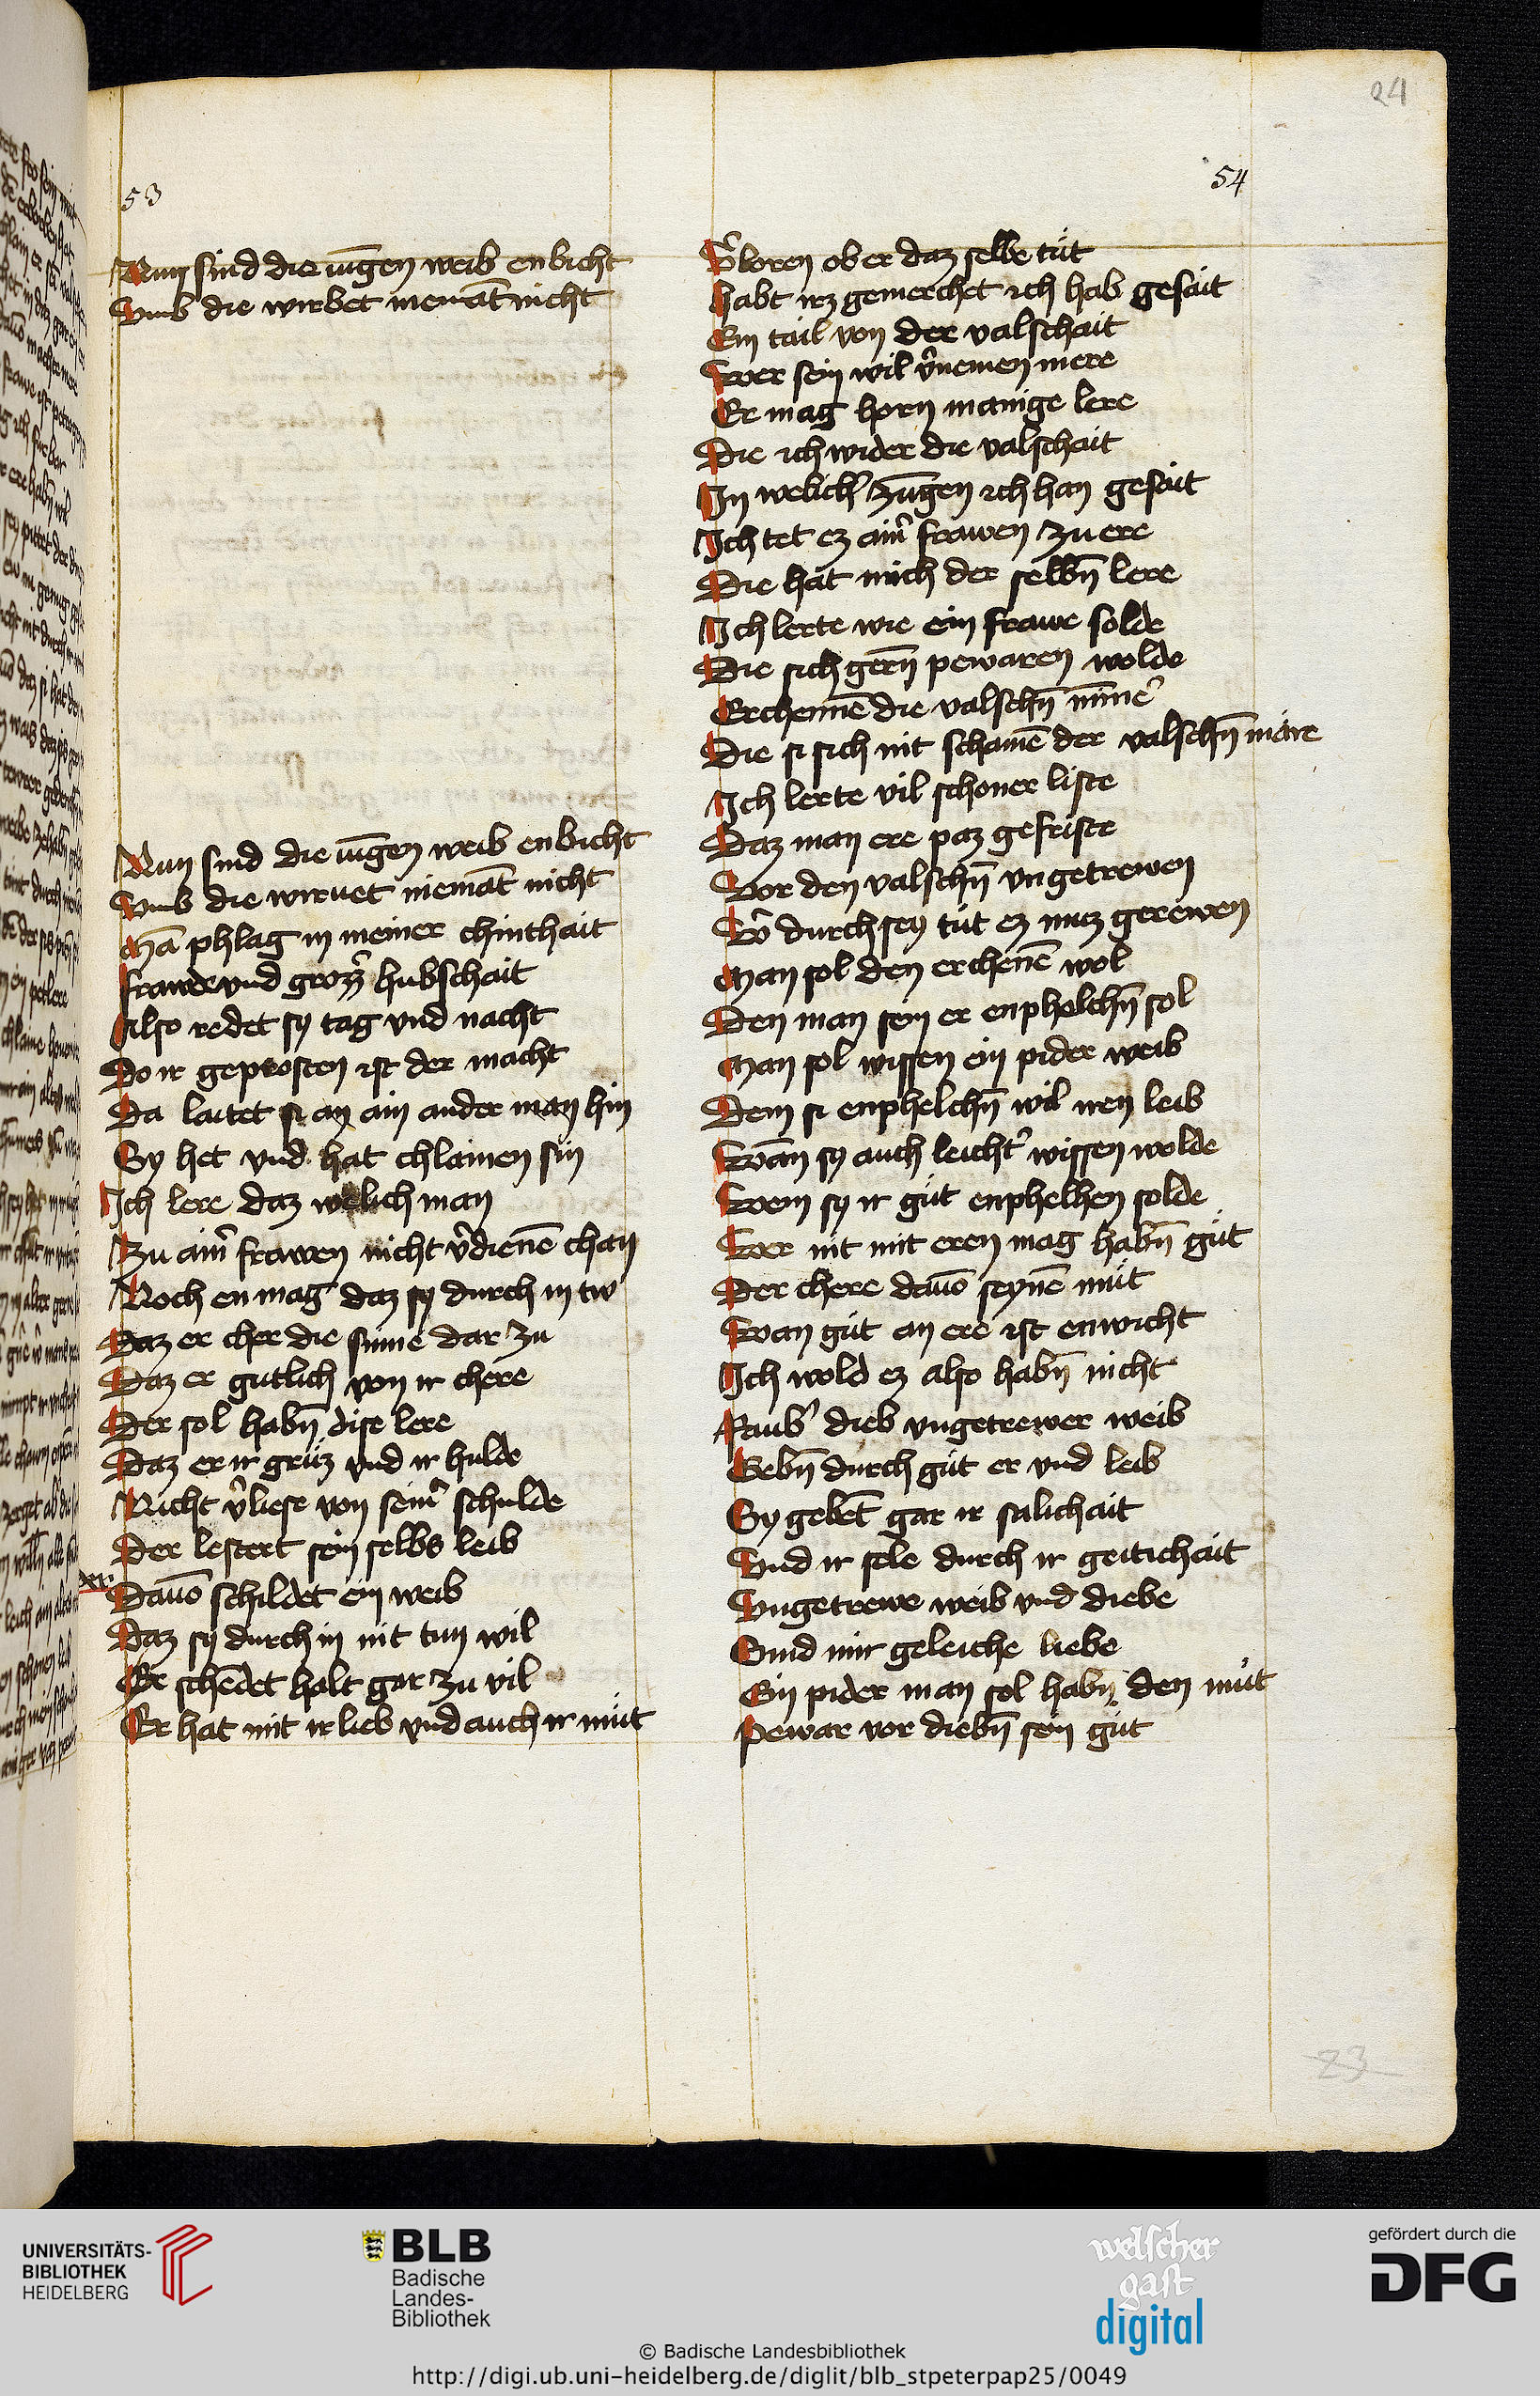 24
53
Nun sind die iu̅gen weib enbicht
Vmb die wirbet niema̅t nicht
Nun sind die iu̅gen weib enbicht
Vmb die wiruet niema̅t nicht
Ma̅ phlag in meiner chinthait
frawde vnd groz̾ hubschait
Also redet sy tag vnd nacht
Do ir geprosten ist der macht
Da laitet si an ain ander man hin
Sy het vnd hat chlainen sin
Ich lere daz welich man
Zu aim̾ frawen nicht v̾diene̅ chan
Noch en mag daz sy durch in tw
Daz er cher die sinne dar zu
Daz er gutlich von ir chere
Der sol habn̅ dise lere
Daz er ir grúz vnd ir hulde
Nicht v̾liese von seim̾ schulde
Der lestert sein selbs leib
Dauo̅ schildet ein weib
Daz sy durch in nit tun wil
Er sche̅det halt gar zu vil
Er hat mit ir lieb vnd auch ir můt
54
V̾loren ob er daz selbe tůt
habt irz gemerchet ich hab gesait
Ein tail von der valschait
Wer sein wil v̾nemen mere
Er mag horn manige lere
Die ich wider die valschait
In welich̾ zu̅gen ich han gesait
Ich tet ez aim̾ frawen zu ere
Die hat mich der selbn̅ lere
Ich lerte wie ein frawe solde
Die sich gern̅ pewaren wolde
Erchenne̅ die valschn̅ mi̅ne̾
Die si sich nit schame̅ der valschn̅ märe
Ich lerte vil schoner liste
Daz man ere paz gefriste
Vor den valschn̅ vngetrewen
W̾ durch sey tůt ez muz gerewen
Man sol den erchene̅ wol
Den man sein er enphelchn̅ sol
Man sol wissen ein pider weib
Dem si enphelchn̅ wil iren leib
Wa̅n sy auch leicht̾ wissen wolde
Wem sy ir gůt enphelhen solde
Wer nit mit eren mag habn̅ gůt
Der chere dauo̅ seyne̅ můt
Wan gůt an ere ist enwicht
Ich wold ez also habn̅ nicht
Raub̾ dieb vngetrewer weib
Gebn̅ durch gůt er vnd leib
Sy gebe̅t gar ir salichait
Vnd ir sele durch ir geitichait
Vngetrewe weib vnd diebe
Sind mir geleiche liebe
Ein pider man sol habn̅ den můt
Pewar vor diebn̅ sein gůt
23
UNIVERSITÄTS-
BIBLIOTHEK
HEIDELBERG
BLB
Badische
Landes-
Bibliothek
welscher
gast
digital
gefördert durch die
DFG
© Badische Landesbibliothek
http://digi.ub.uni-heidelberg.de/diglit/blb_stpeterpap25/0049